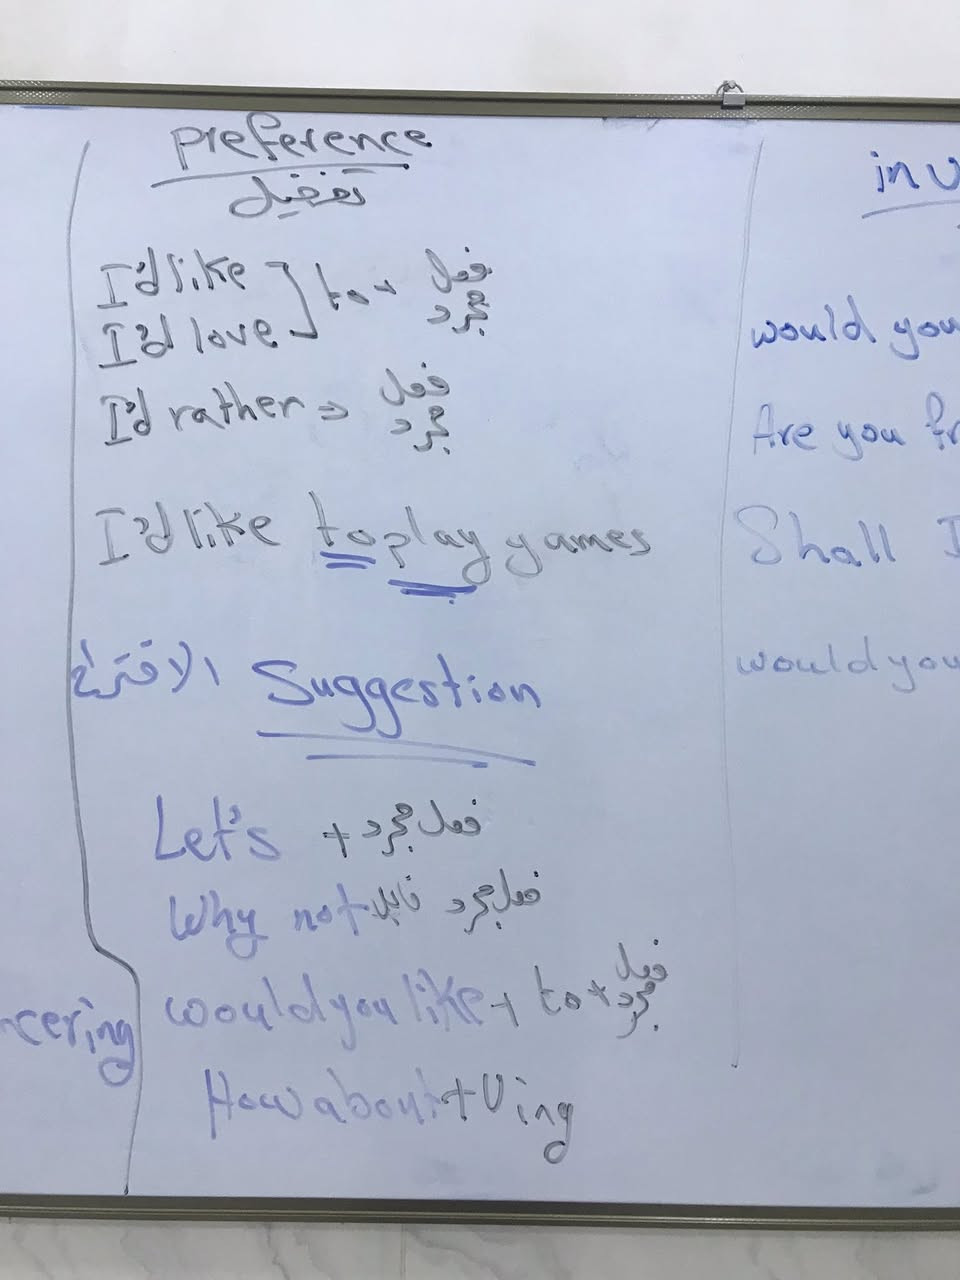 preference
تفضيل
I'd like
I'd love
to + فعل مجرد
I'd rather ⇒ فعل مجرد
I'd like to play games
الاقتراح Suggestion
Let's + فعل مجرد
Why not فعل مجرد
would you like + to + فعل مجرد
How about + Ving
would you
Are you
Shall I
would you